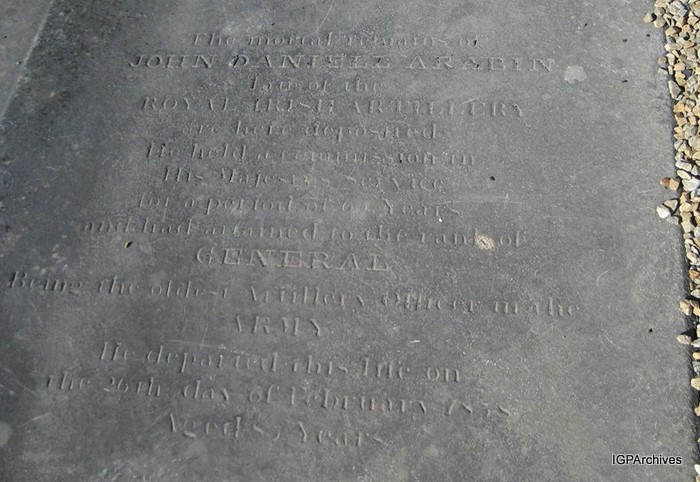 The mortal remains of
JOHN DANIELL ARABIN
late of the
ROYAL IRISH ARTILLERY
are here deposited
He held a commission in
His Majesty's Service
for a period of Years
and had attained to the rank of
GENERAL
Being the oldest Artillery Officer in the
ARMY
He departed this life on
the 26th day of February
Aged Years
IGPArchives